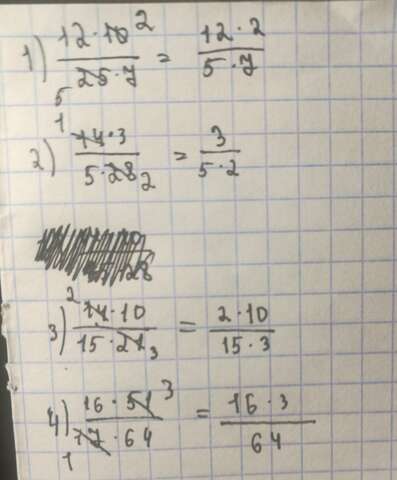 1) 12·10 2 / 25·7 5 = 12·2 / 5·7
2) 1 14·3 / 5·28 2 = 3 / 5·2
28
3) 2 14·10 / 15·21 3 = 2·10 / 15·3
4) 16·51 3 / 17·64 1 = 16·3 / 64